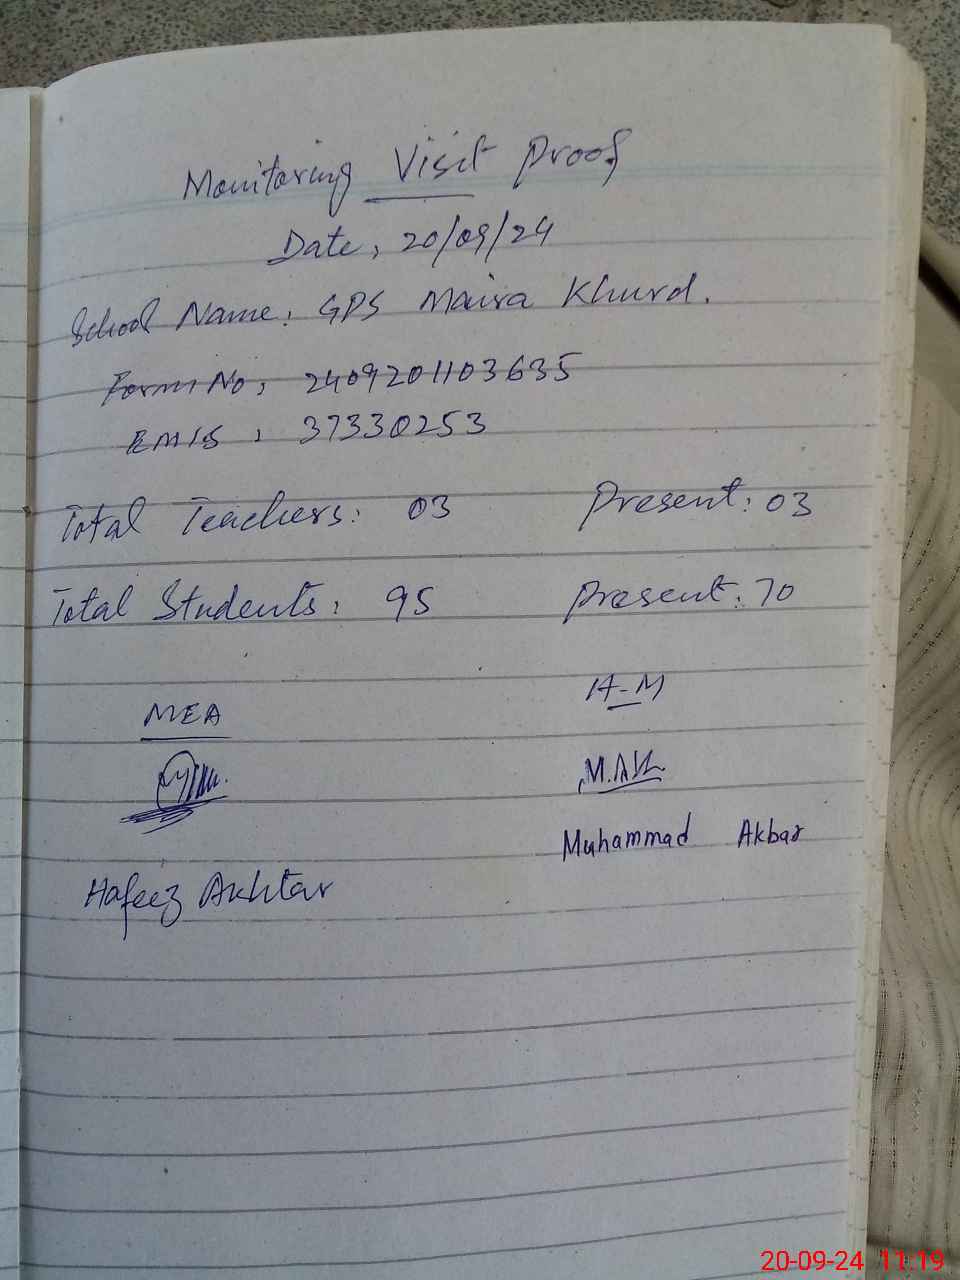 Monitoring Visit Proof
Date, 20/09/24
School Name: GPS Maira Khurd.
Form No, 2409201103635
EMIS , 37330253
Total Teachers: 03 Present: 03
Total Students: 95 Present: 70
MEA H-M
M.Ak
Muhammad Akbar
Hafeez Akhtar
20-09-24 11:19